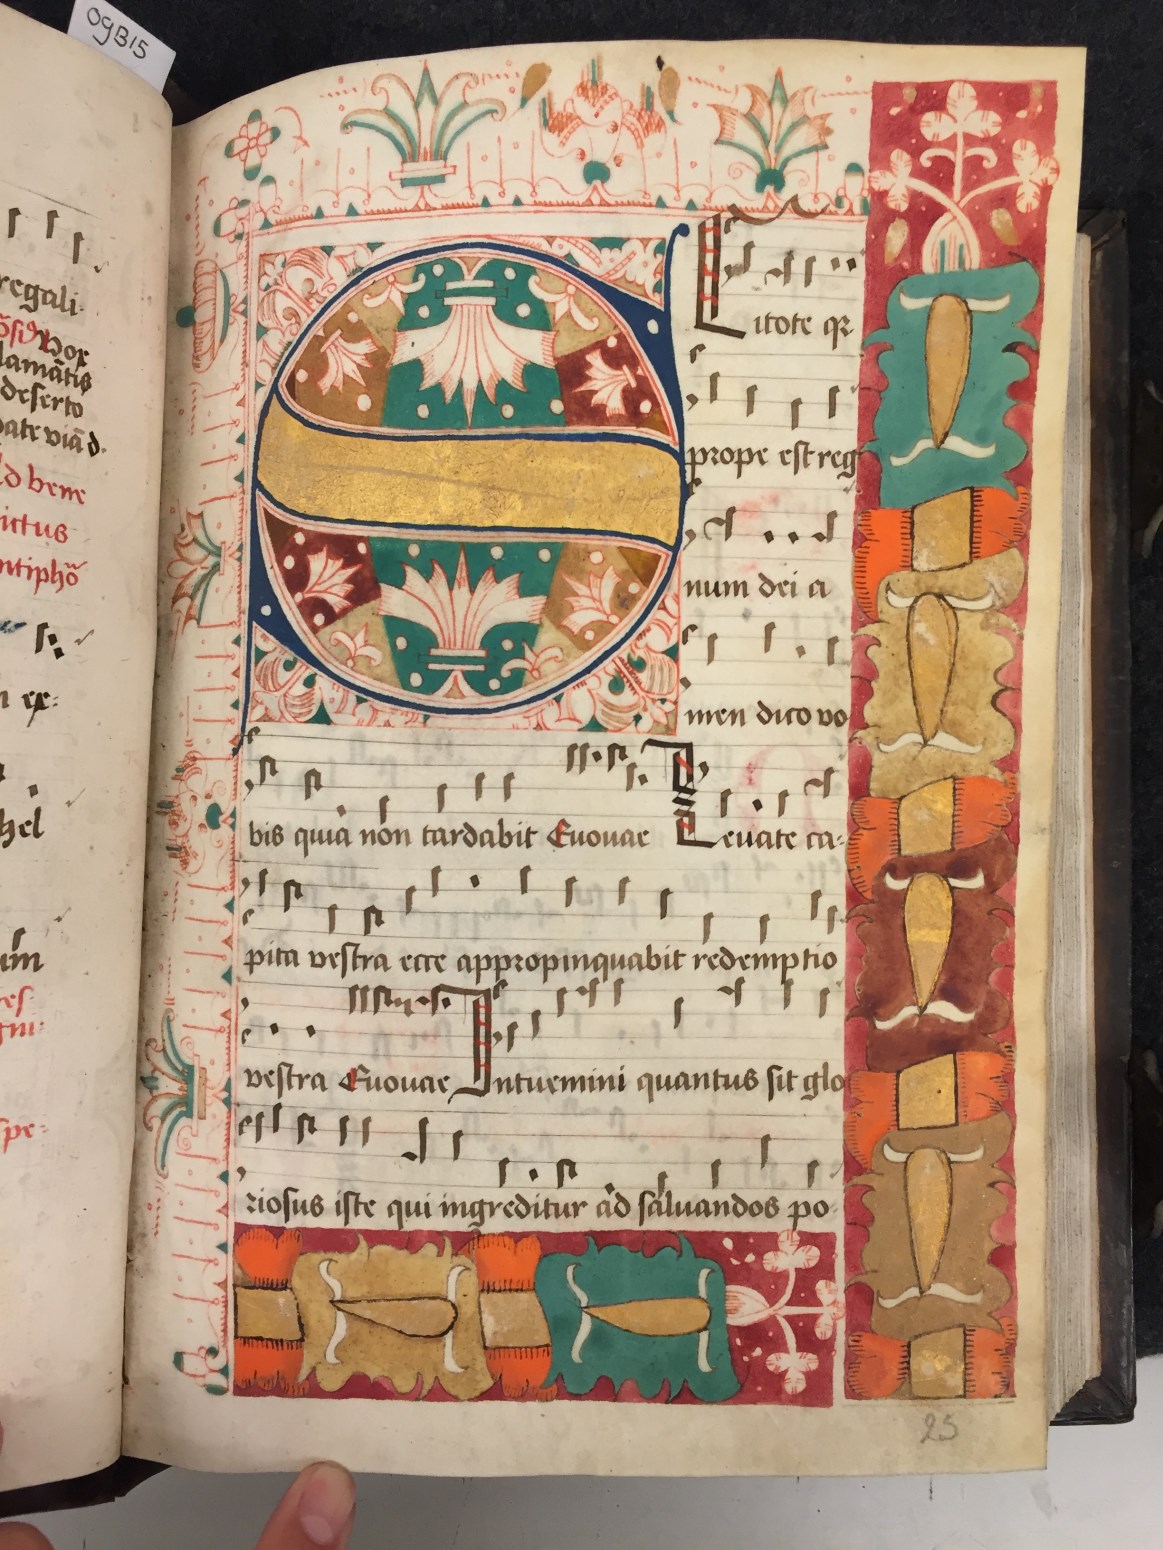 09B15
regali
vox
lamātis
deserto
pate viā d
Ad bene
ictus
ntiphō
n ex:
hel
um
Spe:
E
Litote qr
prope est reg
num dei a
men dico vo
bis quia non tardabit Euouae Leuate ca-
pita vestra ecce appropinquabit redemptio
vestra Euouae Intuemini quantus sit glo
riosus iste qui ingreditur ad saluandos po
25